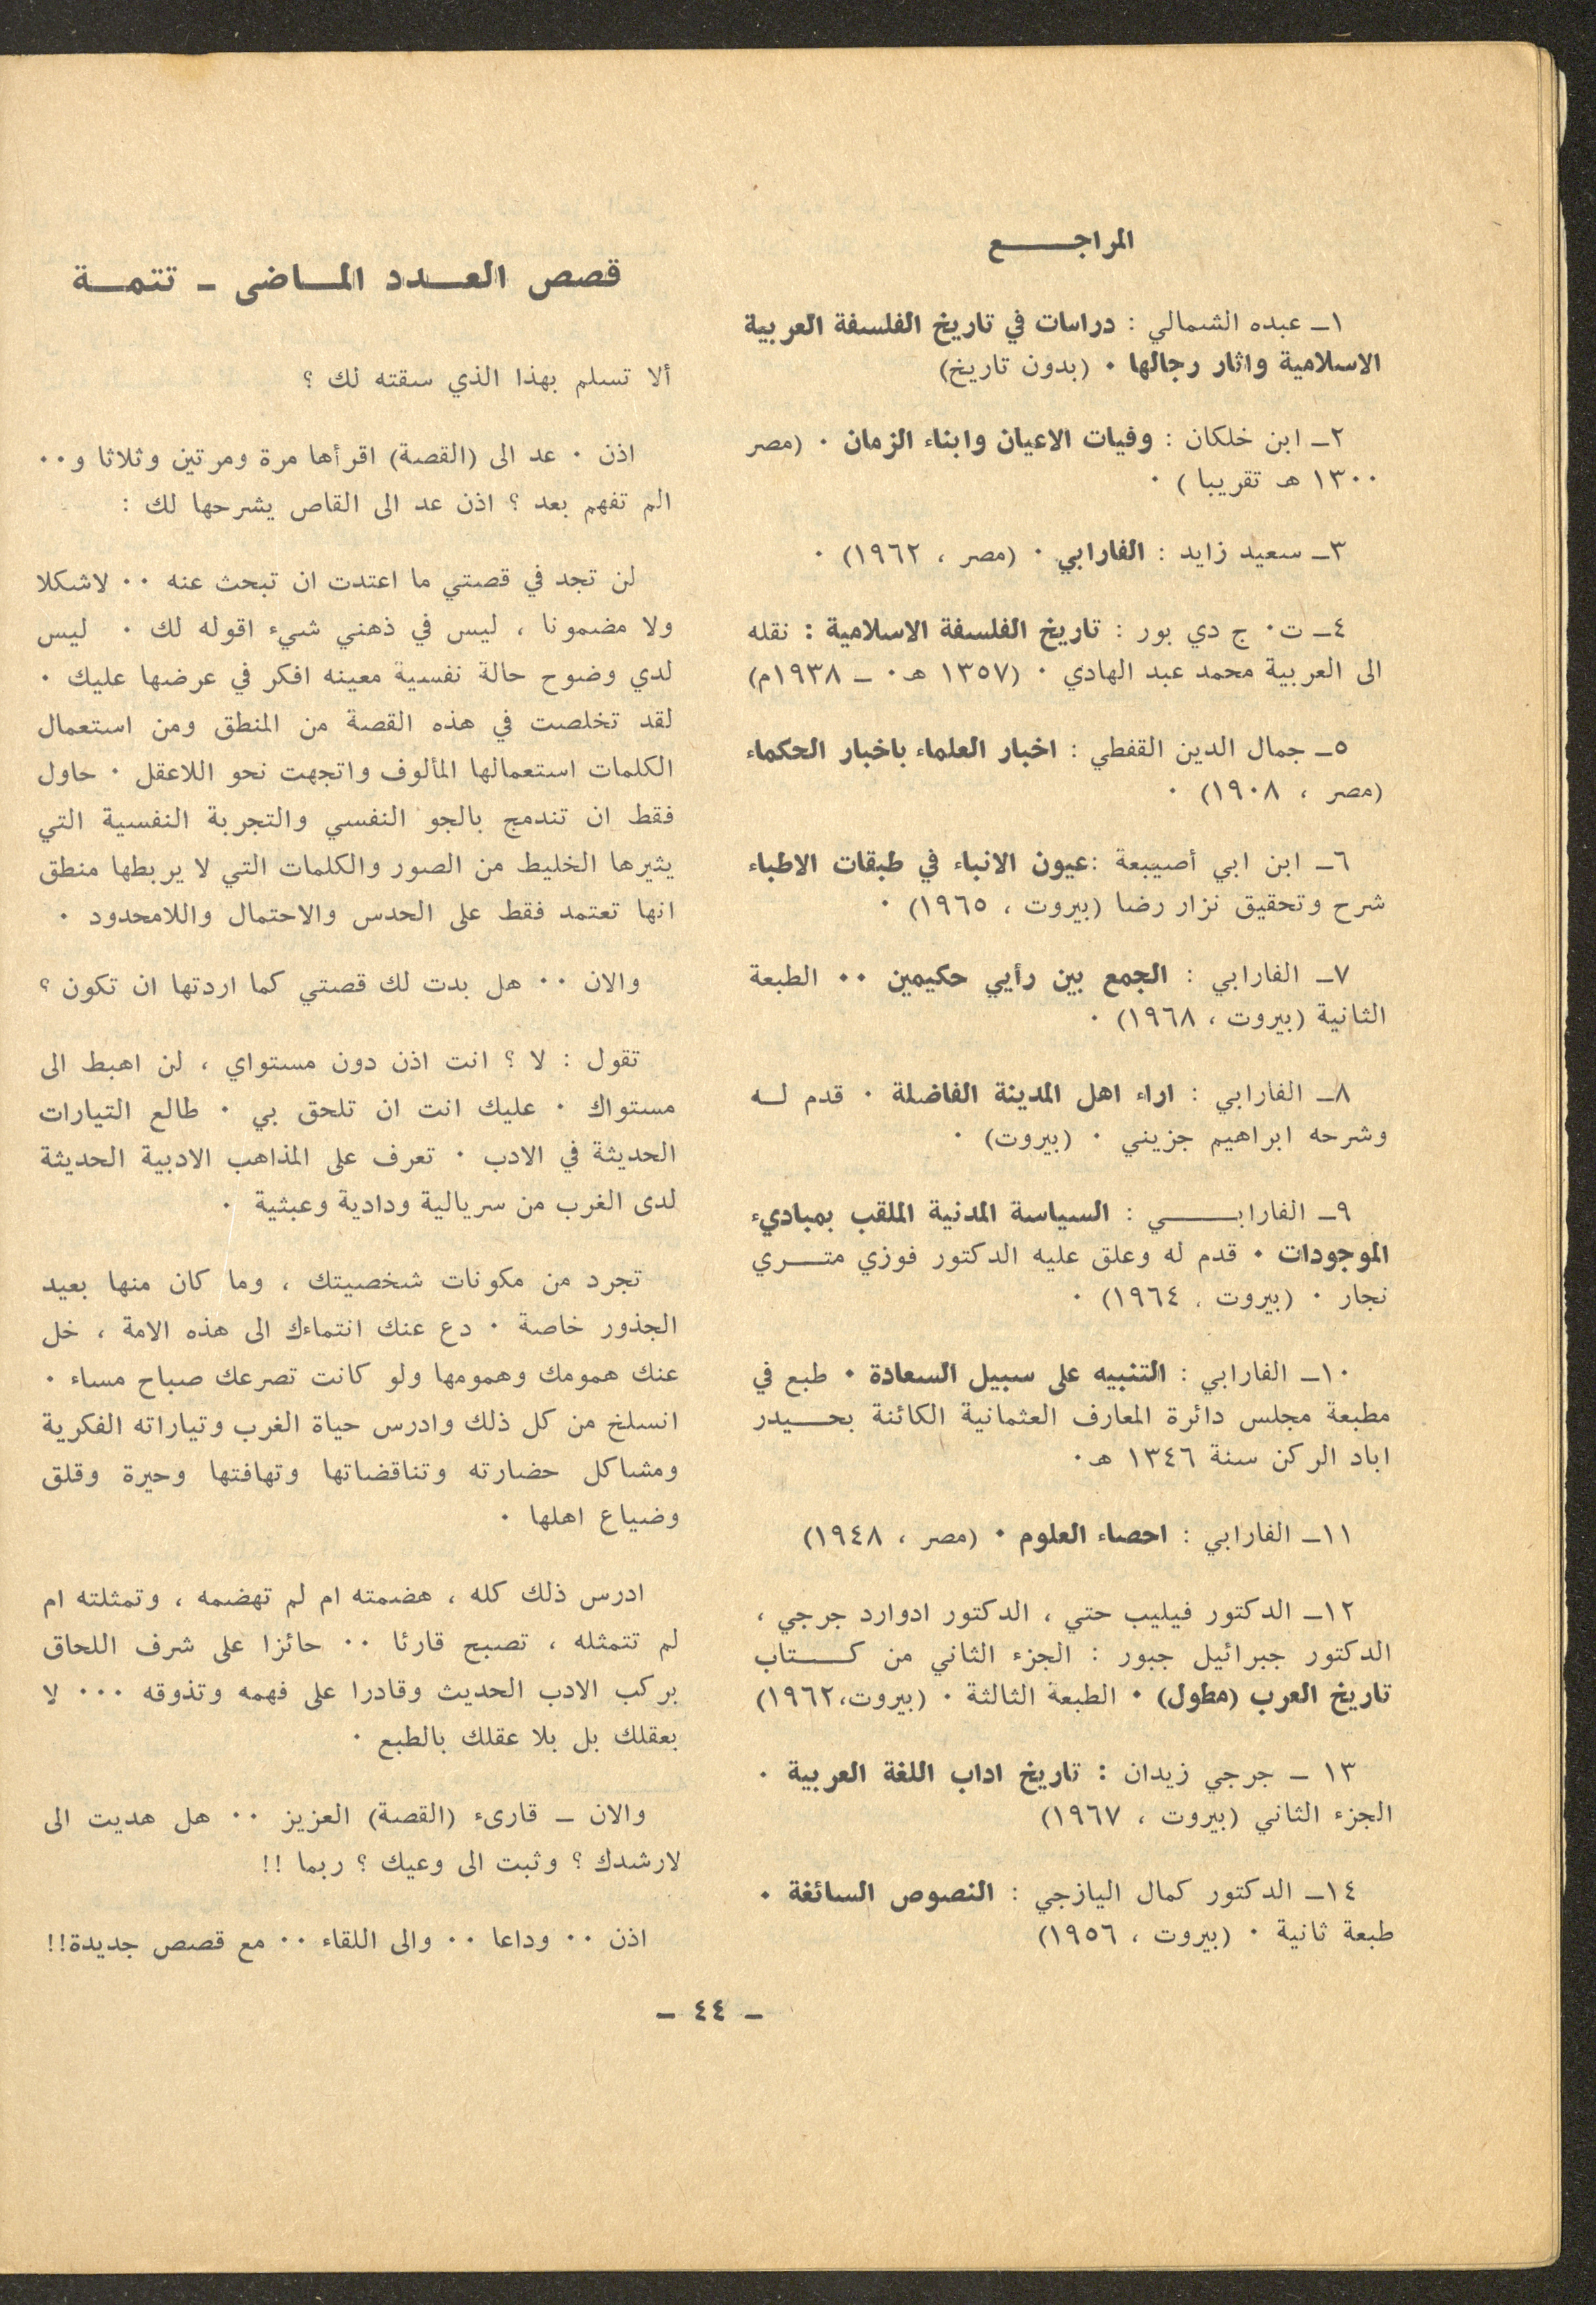 المراجع
١ـ عبده الشمالي : دراسات في تاريخ الفلسفة العربية
الاسلامية واثار رجالها ٠ (بدون تاريخ)
٢ـ ابن خلكان : وفيات الاعيان وابناء الزمان ٠ (مصر
١٣٠٠ هـ تقريبا ) ٠
٣ـ سعيد زايد : الفارابي ٠ (مصر ، ١٩٦٢) ٠
٤ـ ت٠ ج دي بور : تاريخ الفلسفة الاسلامية : نقله
الى العربية محمد عبد الهادي ٠ (١٣٥٧ هـ٠ ـ ١٩٣٨م)
٥ـ جمال الدين القفطي : اخبار العلماء باخبار الحكماء
(مصر ، ١٩٠٨) ٠
٦ـ ابن ابي أصيبعة :عيون الانباء في طبقات الاطباء
شرح وتحقيق نزار رضا (بيروت ، ١٩٦٥) ٠
٧ـ الفارابي : الجمع بين رأيي حكيمين ٠٠ الطبعة
الثانية (بيروت ، ١٩٦٨) ٠
٨ـ الفارابي : اراء اهل المدينة الفاضلة ٠ قدم له
وشرحه ابراهيم جزيني ٠ (بيروت) ٠
٩ـ الفارابي : السياسة المدنية الملقب بمباديء
الموجودات ٠ قدم له وعلق عليه الدكتور فوزي متري
نجار ٠ (بيروت ، ١٩٦٤) ٠
١٠ـ الفارابي : التنبيه على سبيل السعادة ٠ طبع في
مطبعة مجلس دائرة المعارف العثمانية الكائنة بحيدر
اباد الركن سنة ١٣٤٦ هـ٠
١١ـ الفارابي : احصاء العلوم ٠ (مصر ، ١٩٤٨)
١٢ـ الدكتور فيليب حتي ، الدكتور ادوارد جرجي ،
الدكتور جبرائيل جبور : الجزء الثاني من كتاب
تاريخ العرب (مطول) ٠ الطبعة الثالثة ٠ (بيروت،١٩٦٢)
١٣ ـ جرجي زيدان : تاريخ اداب اللغة العربية ٠
الجزء الثاني (بيروت ، ١٩٦٧)
١٤ـ الدكتور كمال اليازجي : النصوص السائغة ٠
طبعة ثانية ٠ (بيروت ، ١٩٥٦)
قصص العدد الماضى ـ تتمة
ألا تسلم بهذا الذي سقته لك ؟
اذن ٠ عد الى (القصة) اقرأها مرة ومرتين وثلاثا و٠٠
الم تفهم بعد ؟ اذن عد الى القاص يشرحها لك :
لن تجد في قصتي ما اعتدت ان تبحث عنه ٠٠ لاشكلا
ولا مضمونا ، ليس في ذهني شيء اقوله لك ٠ ليس
لدي وضوح حالة نفسية معينه افكر في عرضها عليك ٠
لقد تخلصت في هذه القصة من المنطق ومن استعمال
الكلمات استعمالها المألوف واتجهت نحو اللاعقل ٠ حاول
فقط ان تندمج بالجو النفسي والتجربة النفسية التي
يثيرها الخليط من الصور والكلمات التي لا يربطها منطق
انها تعتمد فقط على الحدس والاحتمال واللامحدود ٠
والان ٠٠ هل بدت لك قصتي كما اردتها ان تكون ؟
تقول : لا ؟ انت اذن دون مستواي ، لن اهبط الى
مستواك ٠ عليك انت ان تلحق بي ٠ طالع التيارات
الحديثة في الادب ٠ تعرف على المذاهب الادبية الحديثة
لدى الغرب من سريالية ودادية وعبثية ٠
تجرد من مكونات شخصيتك ، وما كان منها بعيد
الجذور خاصة ٠ دع عنك انتماءك الى هذه الامة ، خل
عنك همومك وهمومها ولو كانت تصرعك صباح مساء ٠
انسلخ من كل ذلك وادرس حياة الغرب وتياراته الفكرية
ومشاكل حضارته وتناقضاتها وتهافتها وحيرة وقلق
وضياع اهلها ٠
ادرس ذلك كله ، هضمته ام لم تهضمه ، وتمثلته ام
لم تتمثله ، تصبح قارئا ٠٠ حائزا على شرف اللحاق
بركب الادب الحديث وقادرا على فهمه وتذوقه ٠٠٠ لا
بعقلك بل بلا عقلك بالطبع ٠
والان ـ قارىء (القصة) العزيز ٠٠ هل هديت الى
لارشدك ؟ وثبت الى وعيك ؟ ربما !!
اذن ٠٠ وداعا ٠٠ والى اللقاء ٠٠ مع قصص جديدة!!
ـ ٤٤ ـ